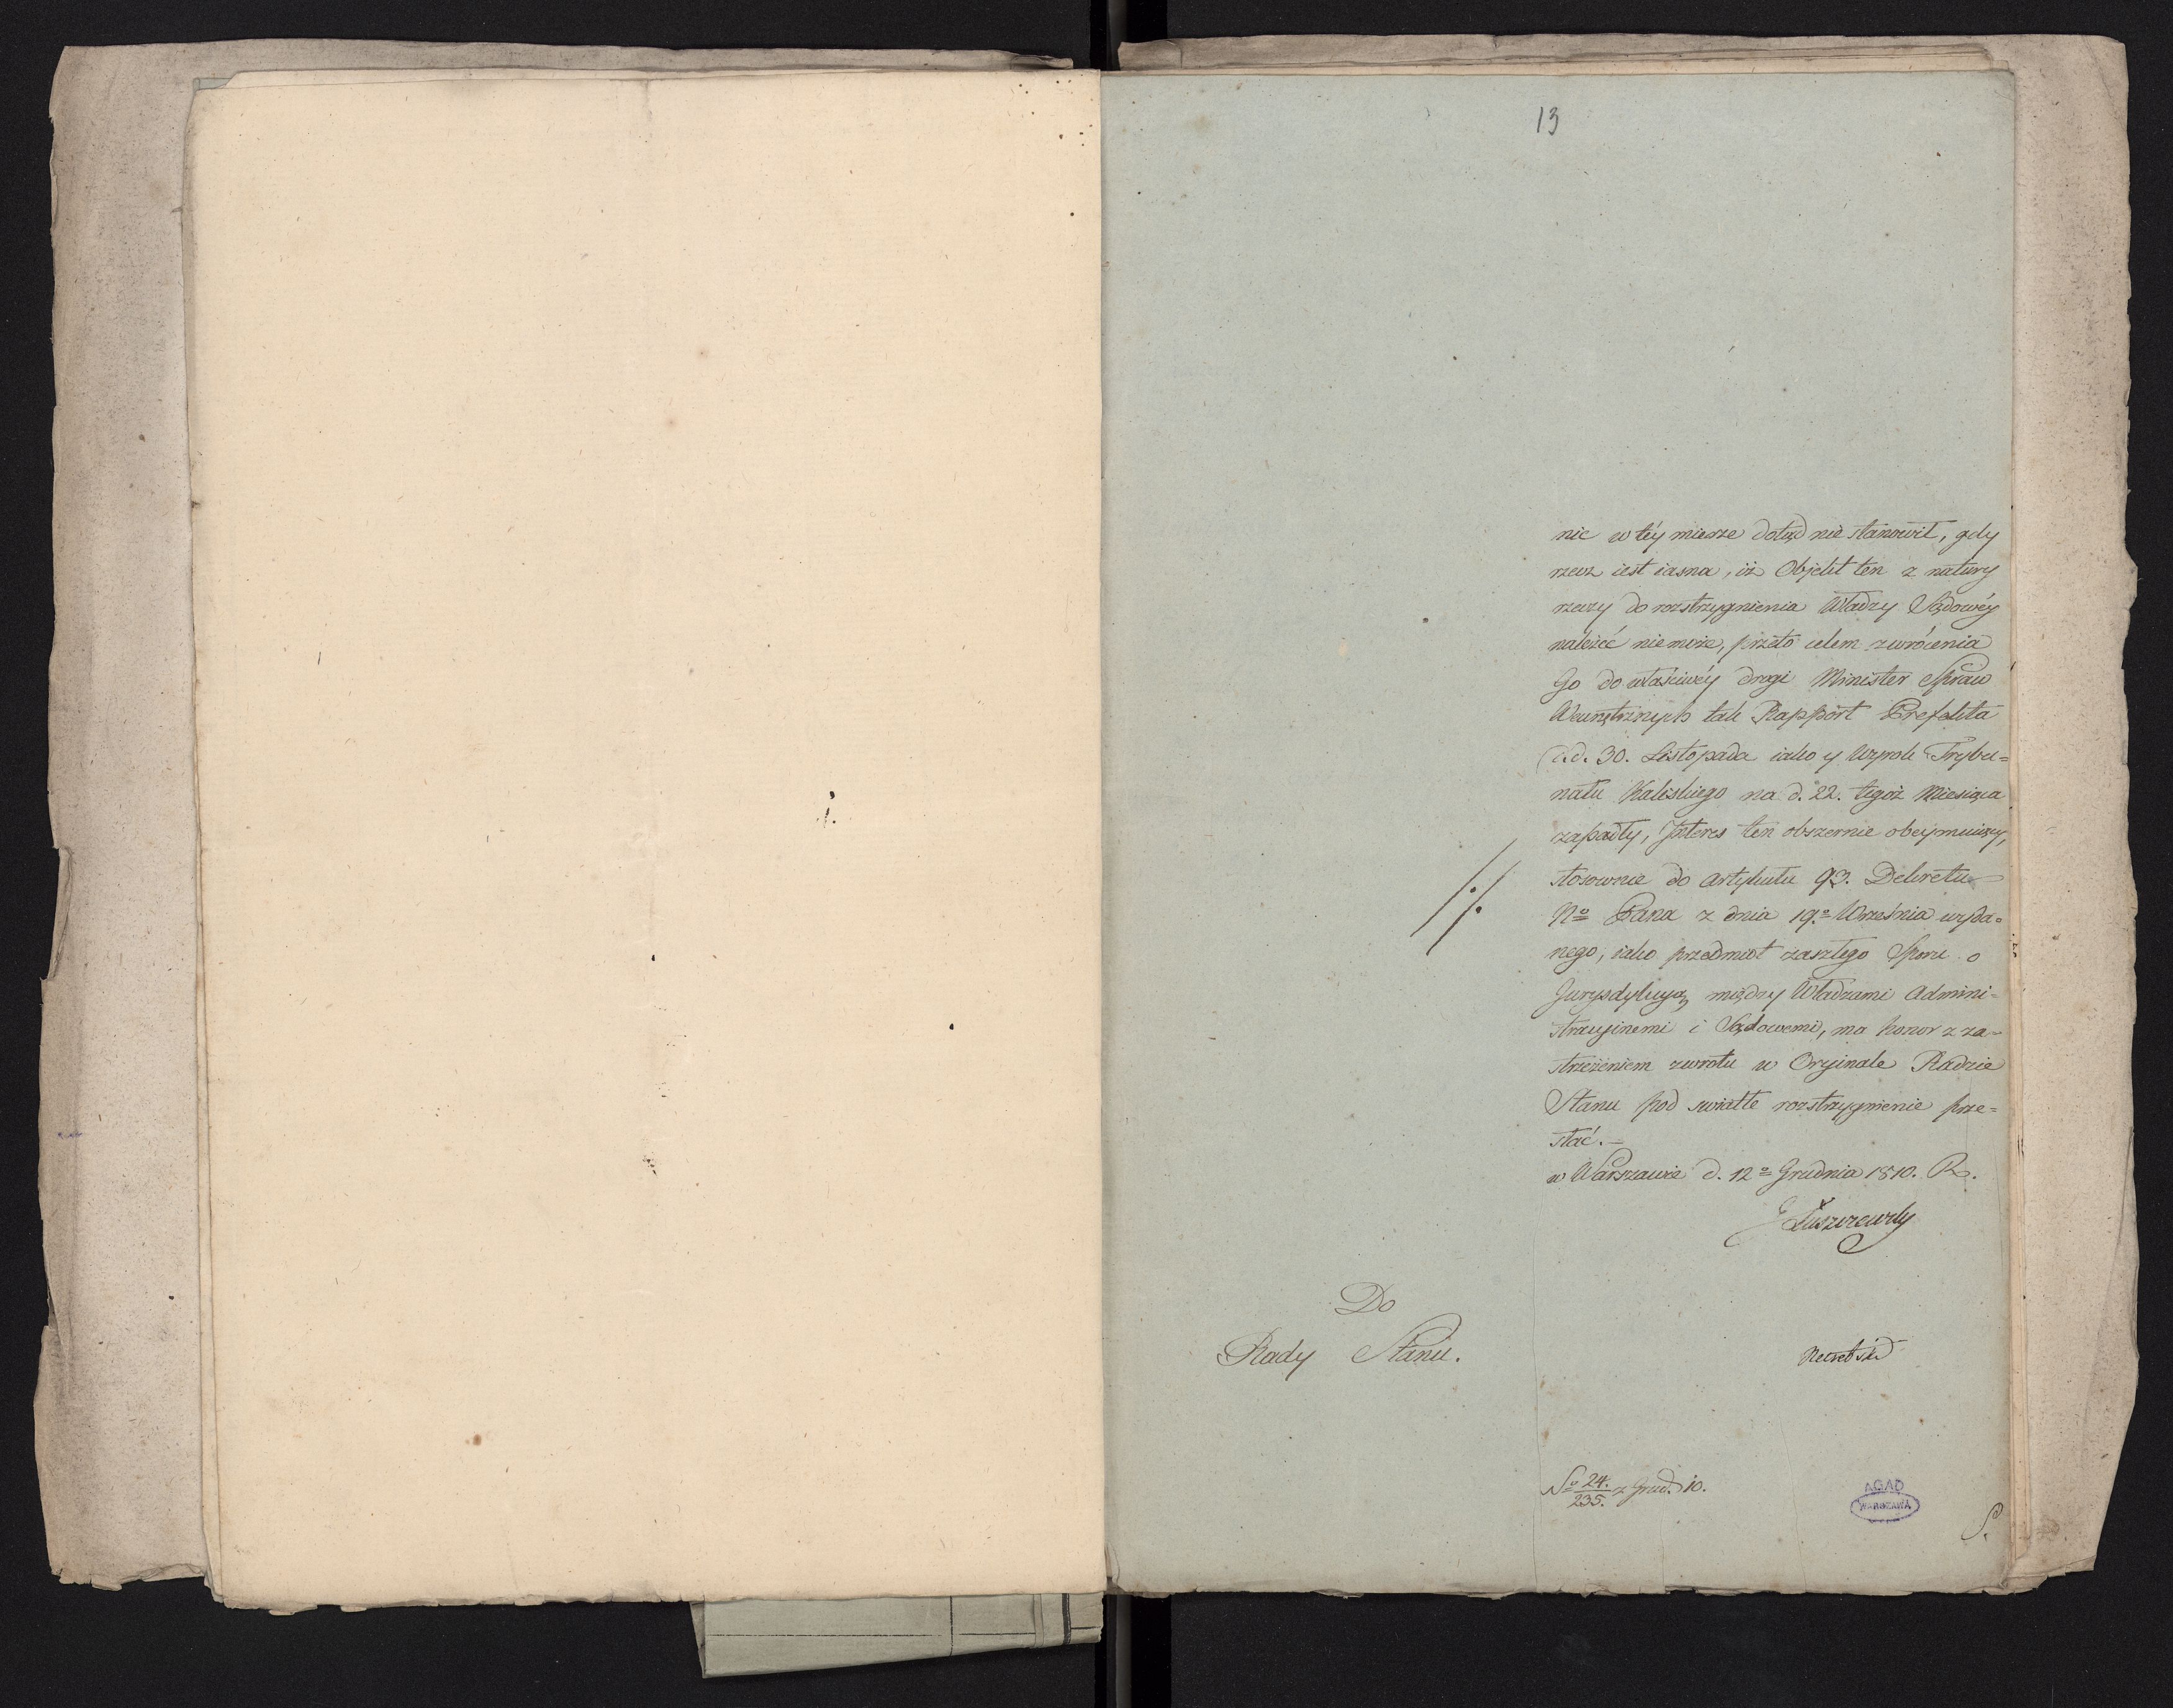 13
nic w téy mierze dotąd nie stanowił, gdy
rzecz iest iasna, iż Objekt ten z natury
rzeczy do rozstrzygnienia Władzy Sądowéy
należeć nie może, przeto celem zwrócenia
Go do właściwéy drogi Minister Spraw
Wewnętrznych tak Rapport Prefekta
d. d. 30. Listopada iako y Wyrok Trybu=
nału Kaliskiego na d. 22. tegoż Miesiąca
zapadły, Jnteres ten obszernie obeymuiący,
stosownie do Artykułu 93. Dekretu
No Pana z dnia 19.o Września wyda=
nego, iako przedmiot zaszłego Sporu o
Jurysdykcyą między Władzami Admini=
stracyinemi i Sądowemi, ma honor z za=
strzeżeniem zwrotu w Oryinale Radzie
Stanu pod swiatłe rozstrzygnienie prze=
słać.—
w Warszawie d. 12o Grudnia 1810. R.
J Łuszczewsky
Do
Rady Stanu.
No 24./235. z Grud. 10.
AGAD
WARSZAWA
S.